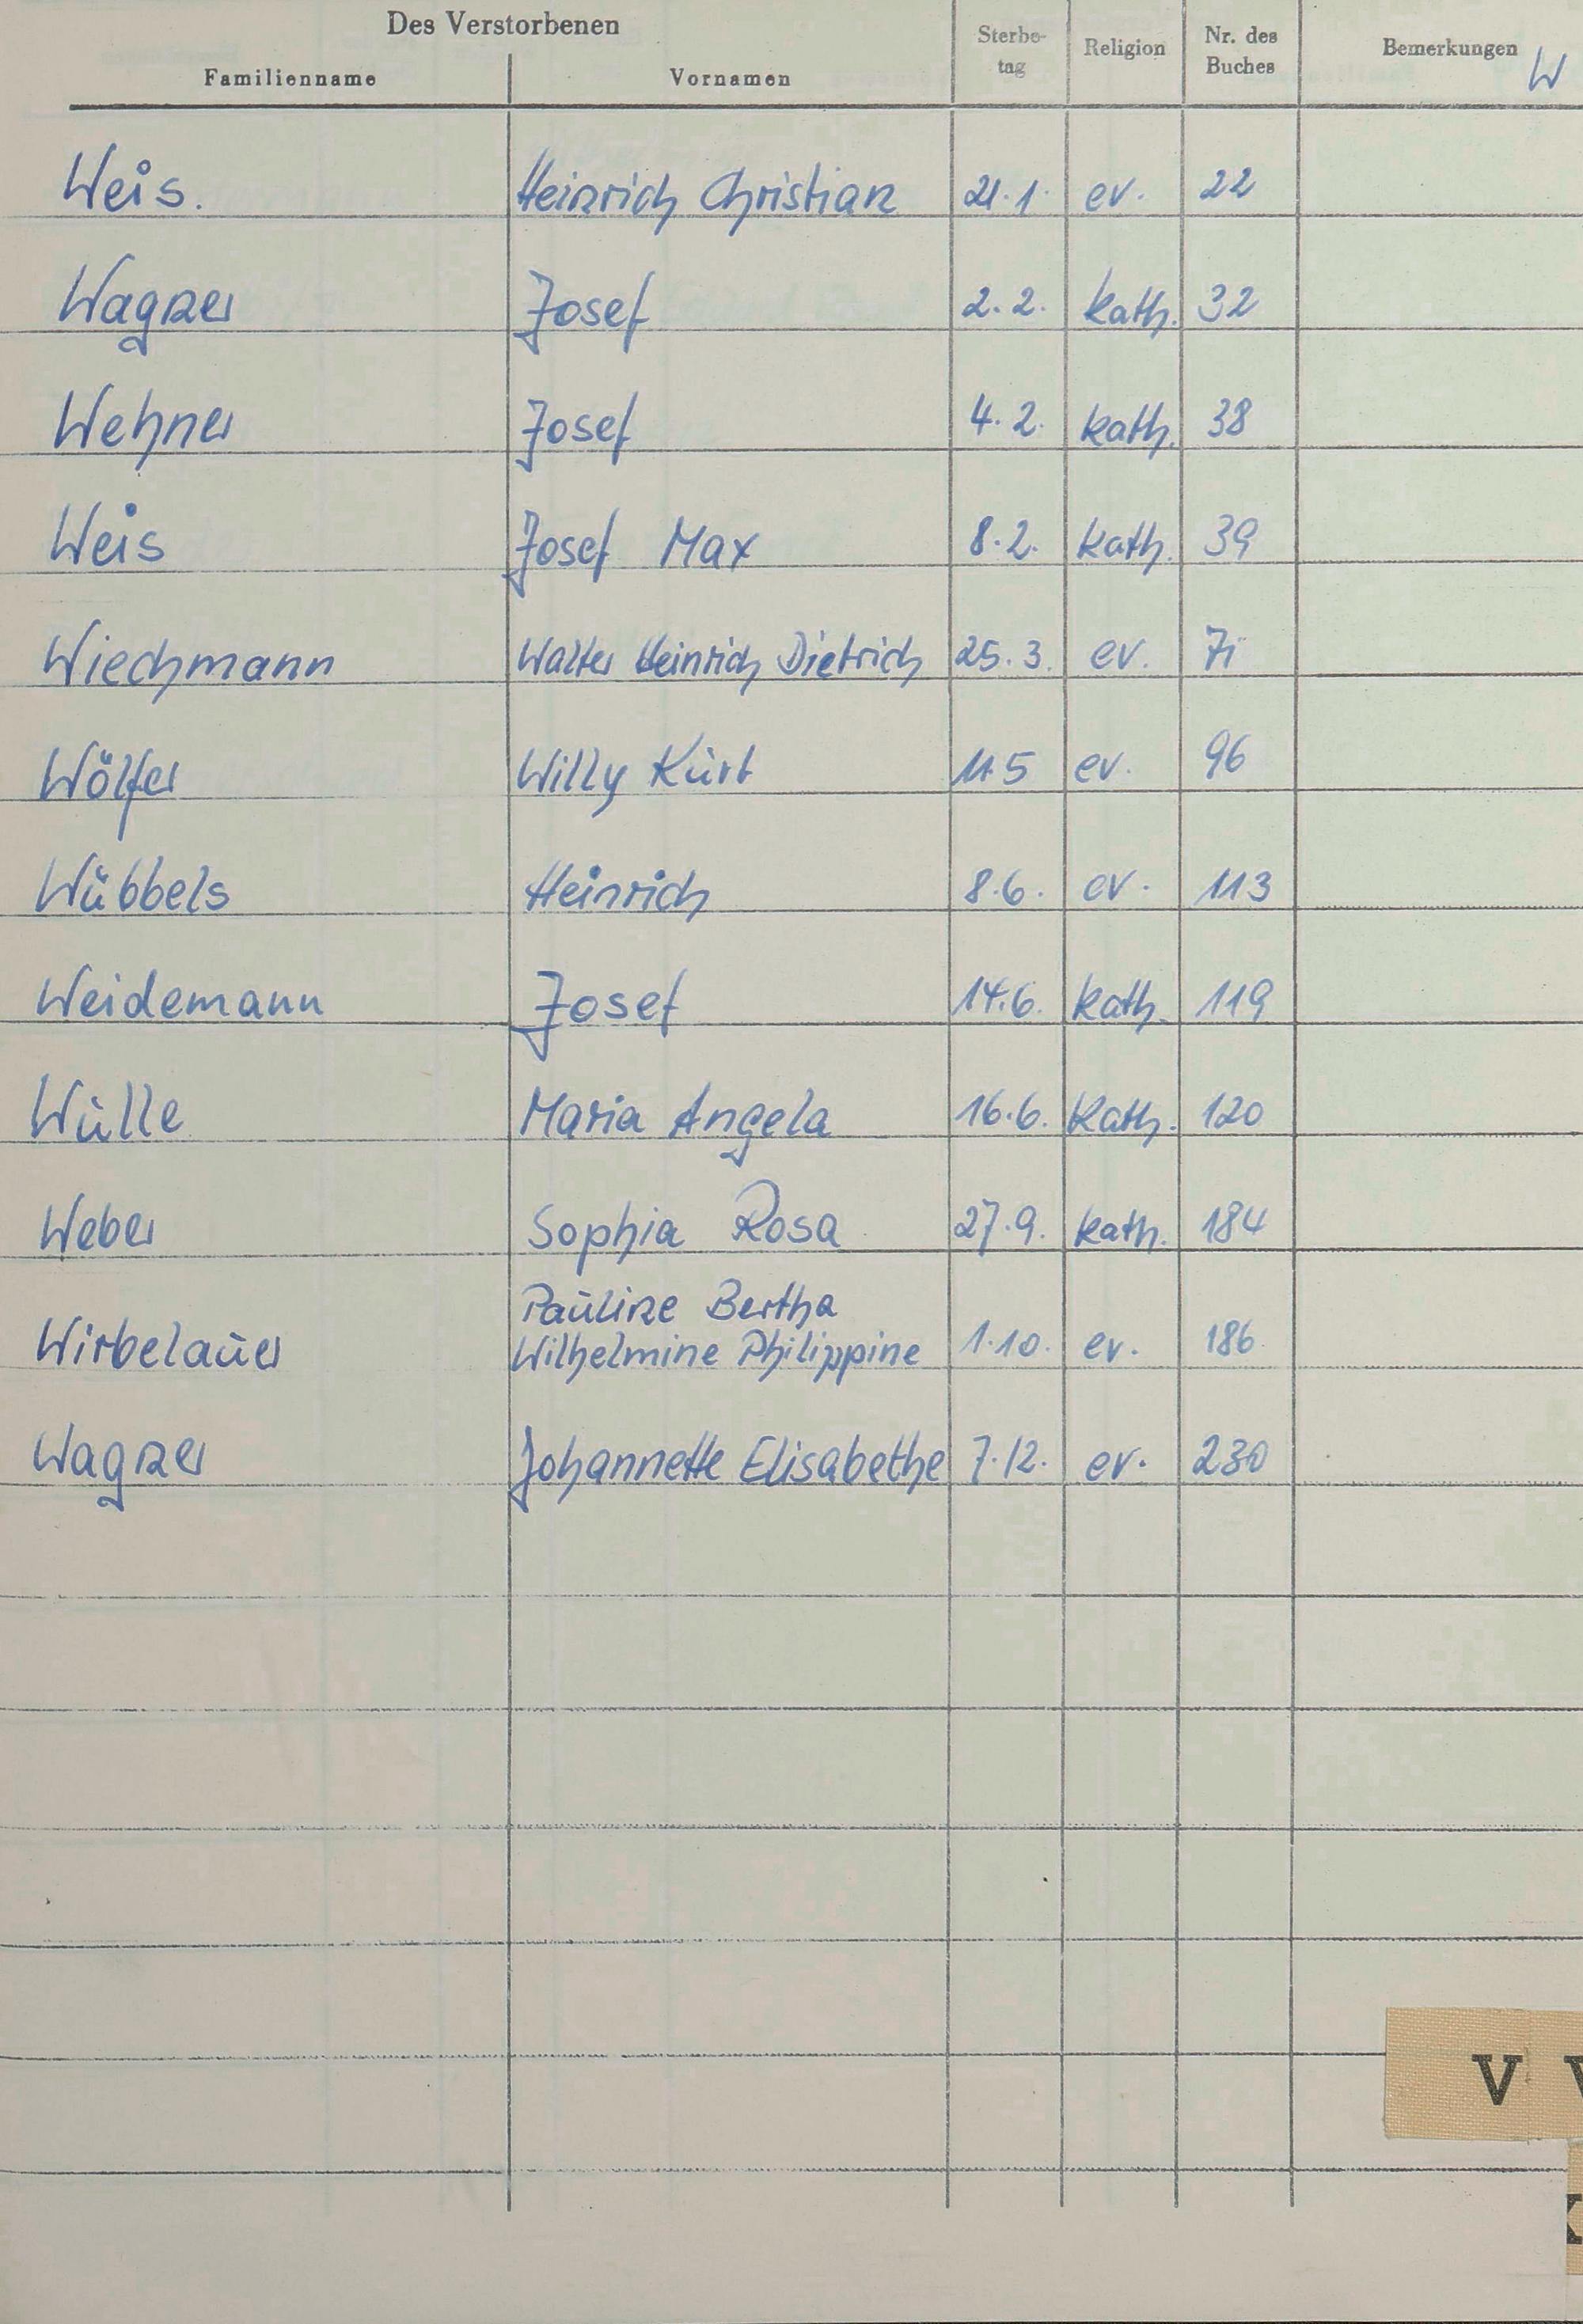 Des Verstorbenen
Familienname Vornamen Sterbe-tag Religion Nr. des Buches Bemerkungen W
Weis. Heinrich Christian 21.1. ev. 22
Wagner Josef 2.2. kath. 32
Wehner Josef 4.2. kath. 38
Weis Josef Max 8.2. kath. 39
Wiechmann Walter Heinrich Dietrich 25.3. ev. 71
Wölfer Willy Kurt 11.5 ev. 96
Wübbels Heinrich 8.6. ev. 113
Weidemann Josef 14.6. kath. 119
Wülle Maria Angela 16.6. kath. 120
Weber Sophia Rosa 27.9. kath. 184
Pauline Bertha
Wirbelauer Wilhelmine Philippine 1.10. ev. 186
Wagner Johannette Elisabethe 7.12. ev. 230
V